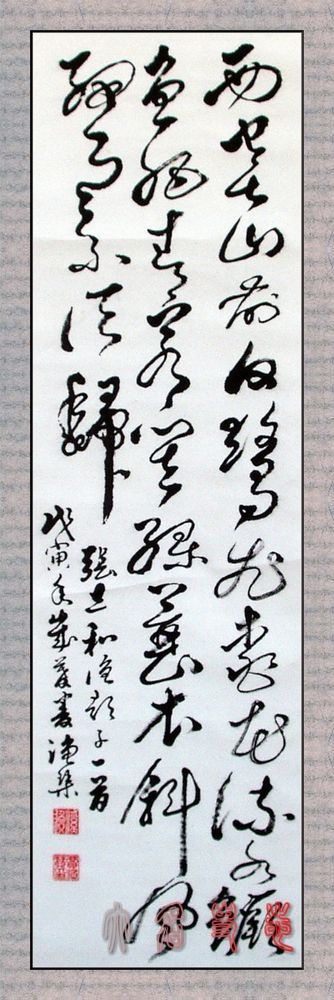 西塞山前白鷺飛桃花流水鱖
魚肥青箬笠綠蓑衣斜風
細雨不須歸
張志和漁歌子一首
戊寅年歲暮書